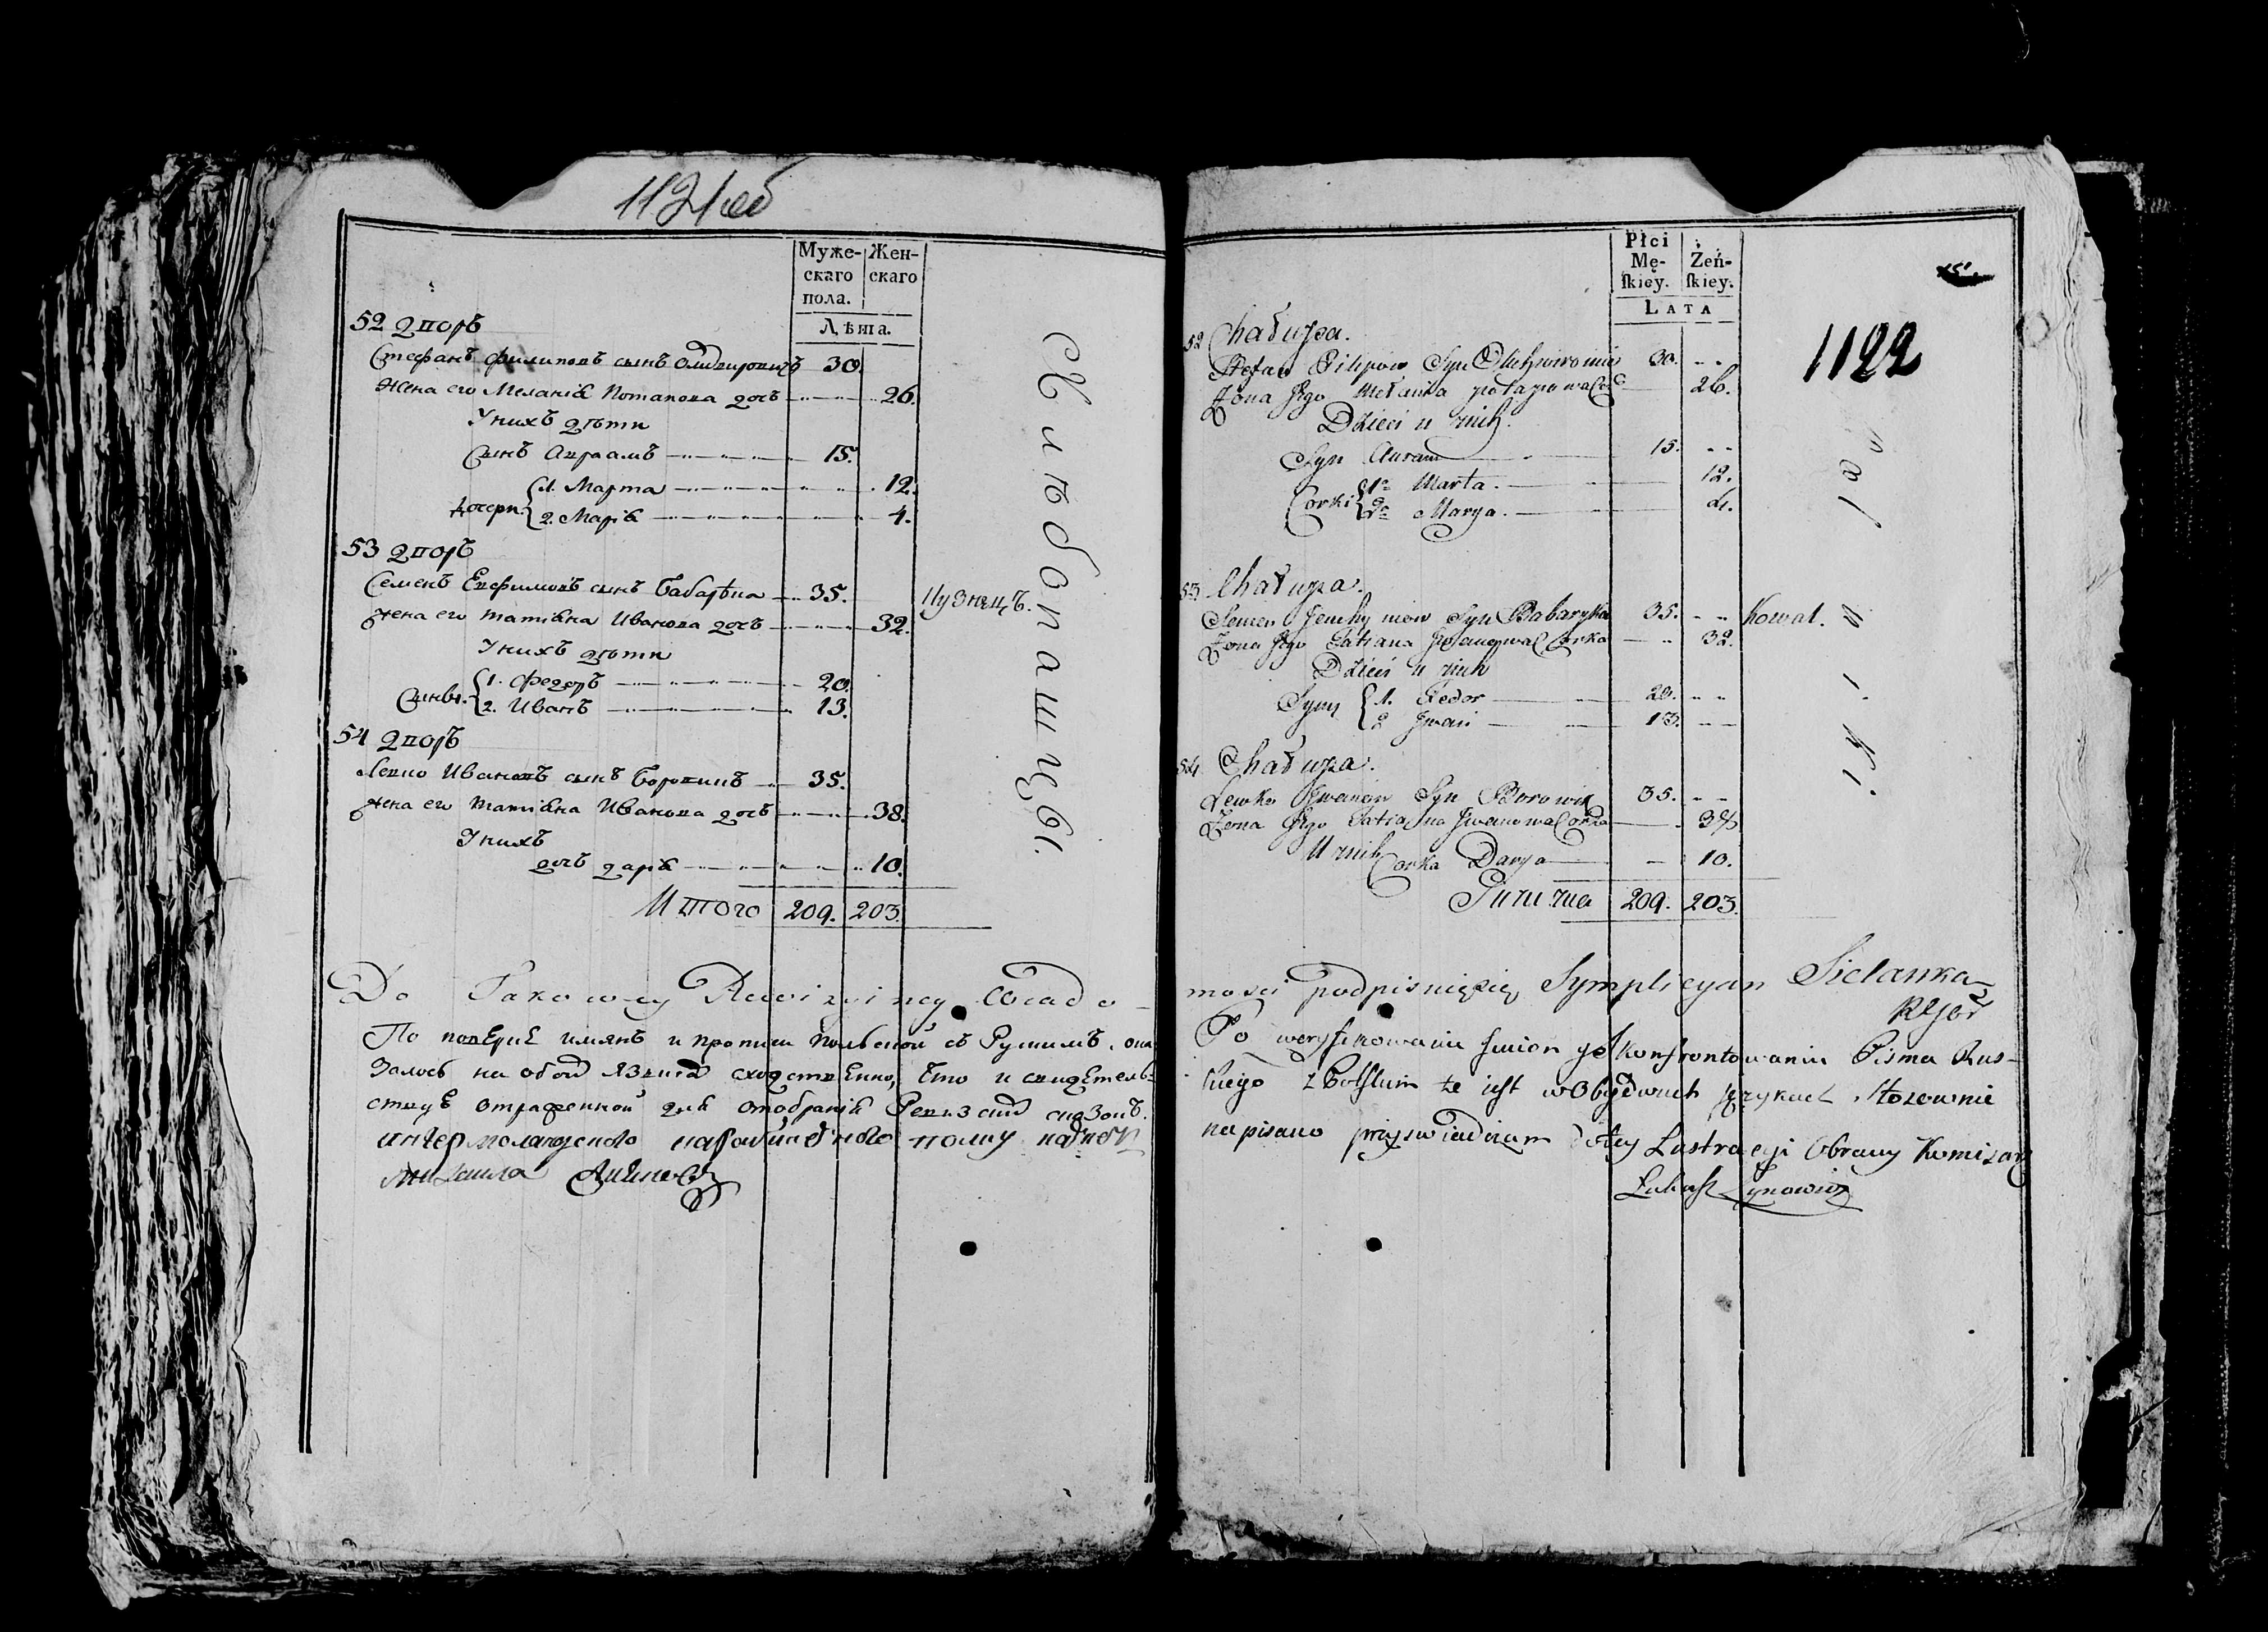 1121 об
Муже- Жен-
скаго скаго
пола.
Лѣта.
52 дворъ
Стефанъ Филиповъ сынъ 30.
Жена его Меланія Потапова дочь 26.
У нихъ дѣти
Сынъ Авраамъ 15.
Дочери 1. Марта 12.
2. Марія 4.
53 дворъ
Семенъ Евфимовъ сынъ Бабарыка 35. Кузнецъ.
Жена его Татіана Иванова дочь 32.
У нихъ дѣти
Сыны. 1. Федоръ 20.
2. Иванъ 13.
54 дворъ
Левко Ивановъ сынъ Боровикъ 35.
Жена его Татіана Иванова дочь 38.
У нихъ
дочь Дарія 10.
Итого 209. 203.
Do Takowey Rewizyiney Wiado-
По повѣрке имянъ и прописи Польской съ Рускимъ, ока
залось на обоихъ языкахъ сходственно, что и свидетель-
ствуетъ отряженной для отобранія Ревизскихъ сказокъ.
Płci Żeń-
Mę- skiey.
skiey.
LATA
1122
52 Chałupa.
Stefan Filipow Syn 30. - -
Żona Jego Mełania Potapowa Corka 26.
Dzieci u nich.
Syn Auram 15. - -
Corki 1a Marta. 12.
2a Marya. 4.
53 Chałupa.
Semen Jeuchymow Syn Babaryka 35. - - Kowal.
Żona Jego Tatiana Jwanowa Corka 32.
Dzieci u nich
Syny 1. Fedor 20. - -
2 Jwan 13. - -
54 Chałupa.
Lewko Jwanow Syn Borowik 35. - -
Żona Jego Tatiana Jwanowa Corka 38.
U nich Corka Darya 10.
Summa 209. 203.
mości podpisuię się Symplicyan Sielanka
Po weryfikowaniu Jmion y skonfrontowaniu Pisma Rus-
kiego z Polskim że iest w Obydwuch językach stosownie
napisano przyswiadczam do tey Lustracyi Obrany Komisarz